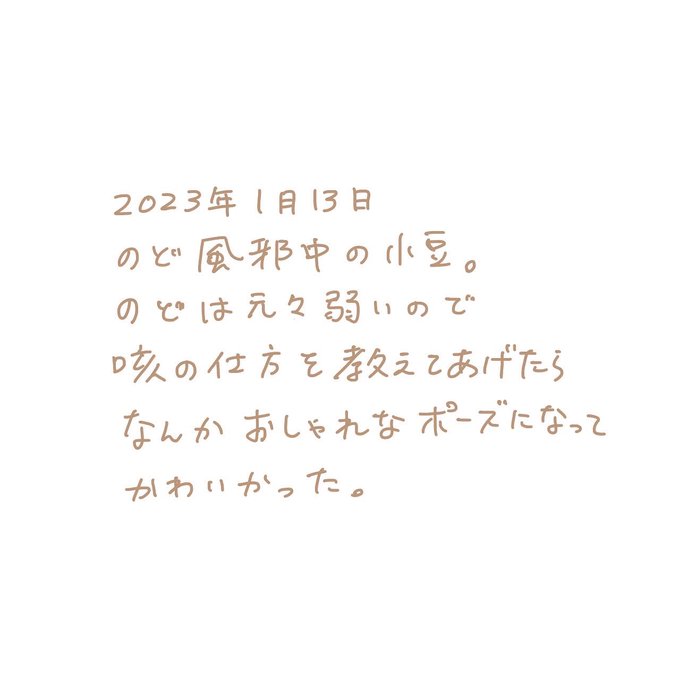 2023年1月13日
のど風邪中の小豆。
のどは元々弱いので
咳の仕方を教えてあげたら
なんかおしゃれなポーズになって
かわいかった。